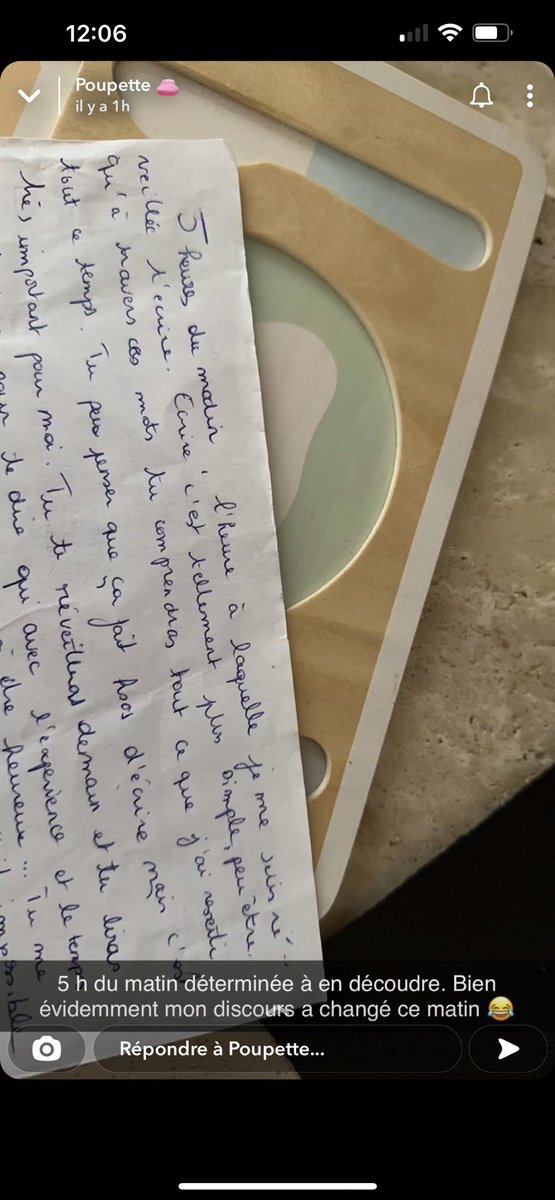 12:06
Poupette
il y a 1h
5 heures du matin l'heure à laquelle je me suis ré-
veillée t'écrire. Ecrire c'est tellement plus simple, peu être
qu'à travers ces mots tu comprendras tout ce que j'ai ressenti
tout ce temps. Tu peux penser que ça fait d'écrire mais c'est
très important pour moi. Tu te réveilleras demain et tu liras
pour te dire qu'avec l'expérience et le temps
être heureux... Tu me
impossible
5 h du matin déterminée à en découdre. Bien
évidemment mon discours a changé ce matin 😂
Répondre à Poupette...